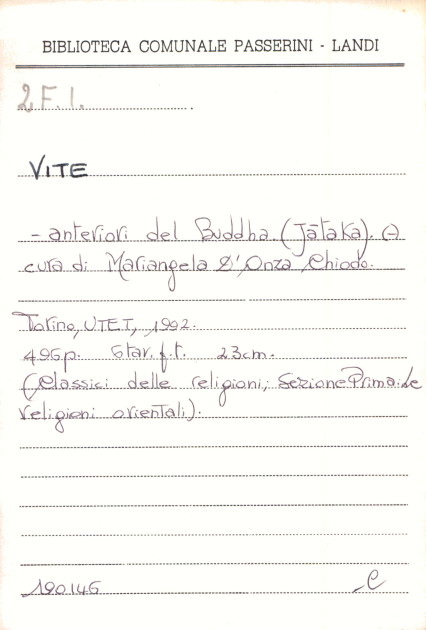 BIBLIOTECA COMUNALE PASSERINI - LANDI
2.F.I.
VITE
- anteriori del Buddha. (Jātaka). (A
cura di Mariangela D'Onza Chiodo.
Torino, UTET, 1992.
496p. 6 tav. f.t. 23cm.
(Classici delle religioni; Sezione Prima: Le
religioni orientali).
190146 C